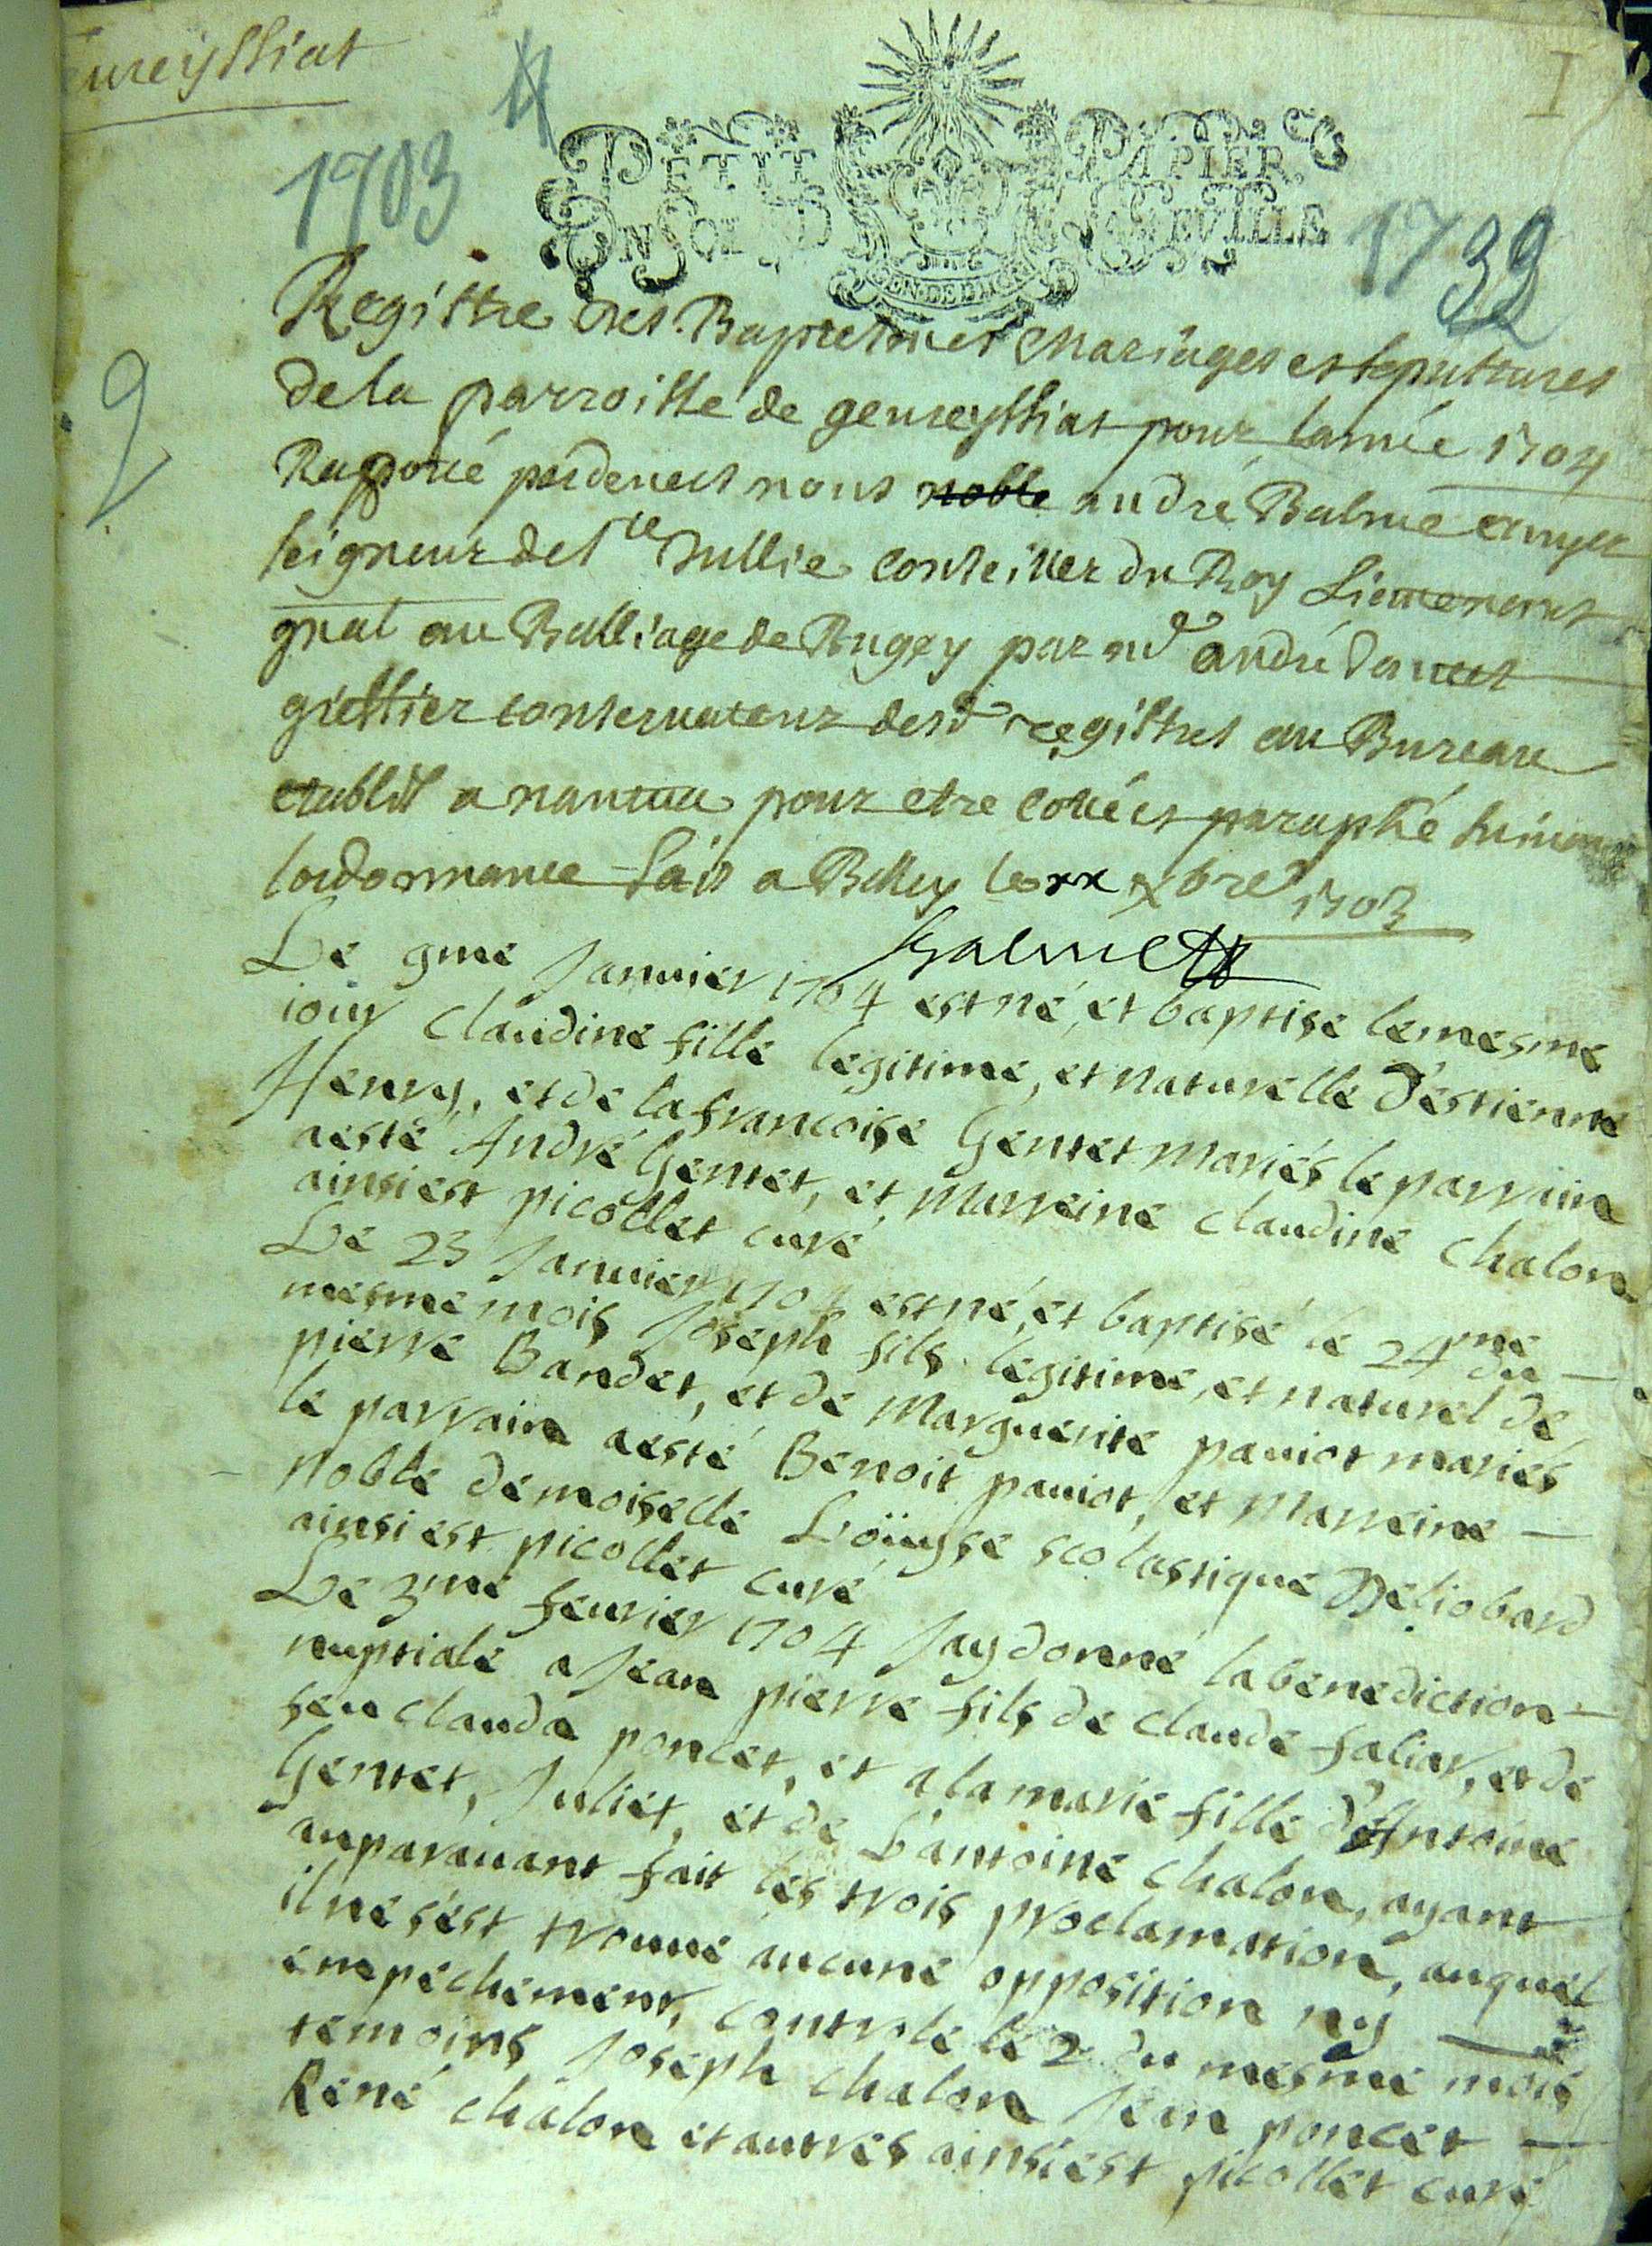 I
1703
PETIT PAPIER
GEN. DE DIION
1732
2
Registre des Baptesmes Mariages et sepultures
de la parroisse de genreyssiat pour lannée 1704
par devers nous noble andré Balme
seigneur de Ste Jullie conseiller du Roy Lieutenant
gnal au Balliage de Bugey par md andré
greffier conservateur desd registres au Bureau
etablit a nantua pour etre cottéés paraphé suivant
lordonnance fait a Belley le xx xbre 1703
Balme
Le 9me Januier 1704 est né, et baptisé le mesme
iour Claudine fille legitime, et naturelle d'estienne
Henry, et de la francoise Gentet mariés le parrain
a esté André Gentet, et Marreine Claudine Chalon
ainsi est picollet curé
Le 23 Januier 1704 est né, et baptisé le 24me du
mesme mois Joseph fils legitime, et naturel de
pierre Bandet, et de Marguerite pauiot mariés
le parrain a esté Benoit pauiot, et Marreine
Noble demoiselle Loüyse scolastique Deliobard
ainsi est picollet curé
Le 3me feurier 1704 Jay donné la benediction
nuptiale a Jean pierre fils de Claude faliar, et de
feu Clauda poncet, et a la marie fille d'Antoine
Gentet, Juliet, et de L'antoine Chalon, ayant
auparauant fait les trois proclamation, auquel
il ne s'est trouué aucune opposition ny
empechement, controle le 2 du mesme mois
temoins Joseph Chalon Jean poncet
René Chalon et autres ainsi est picollet curé